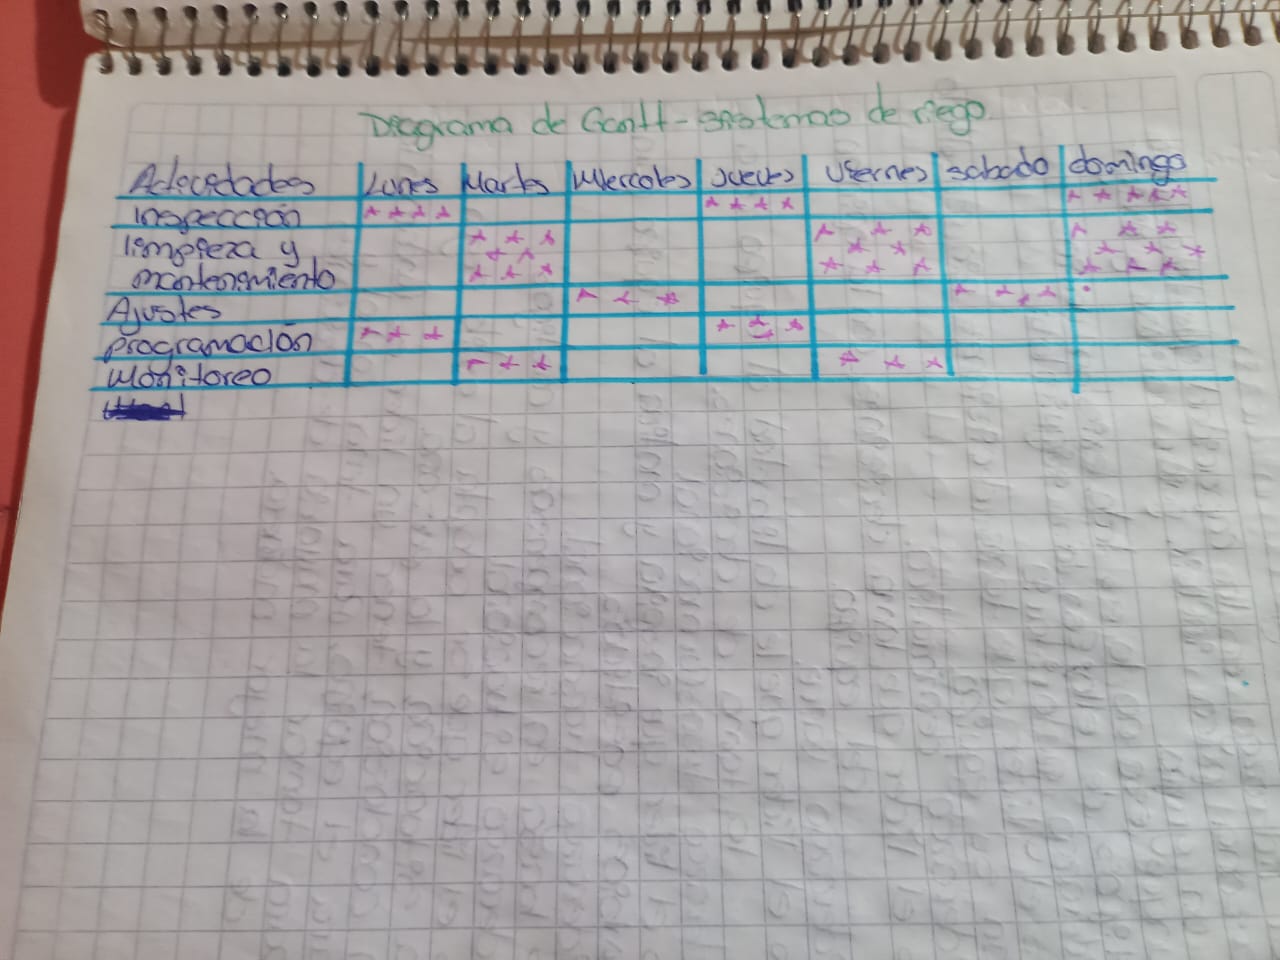 Diagrama de Gantt - sistemas de riego
Actividades Lunes Martes Miercoles Jueves Viernes sabado domingo
Inspección
limpieza y
mantenimiento
Ajustes
programación
Monitoreo